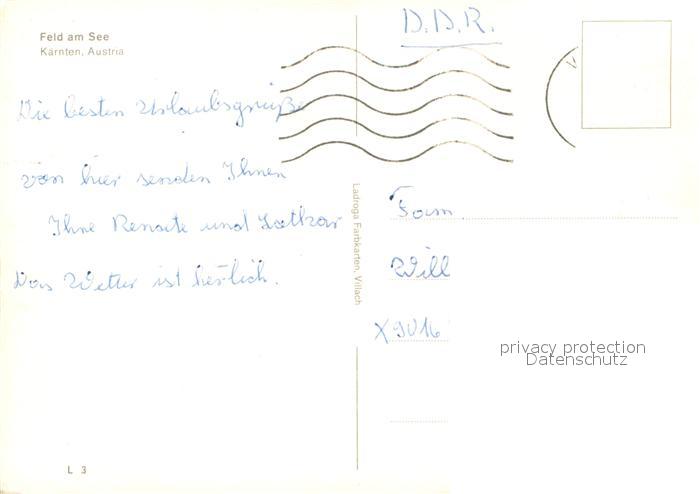 Feld am See
Kärnten, Austria
Die besten Urlaubsgrüße
von hier senden Ihnen
Ihre Renate und Lothar
Das Wetter ist herlich.
L 3
Ladroga Farbkarten, Villach
D.D.R.
Fam.
Will
X9016
privacy protection
Datenschutz